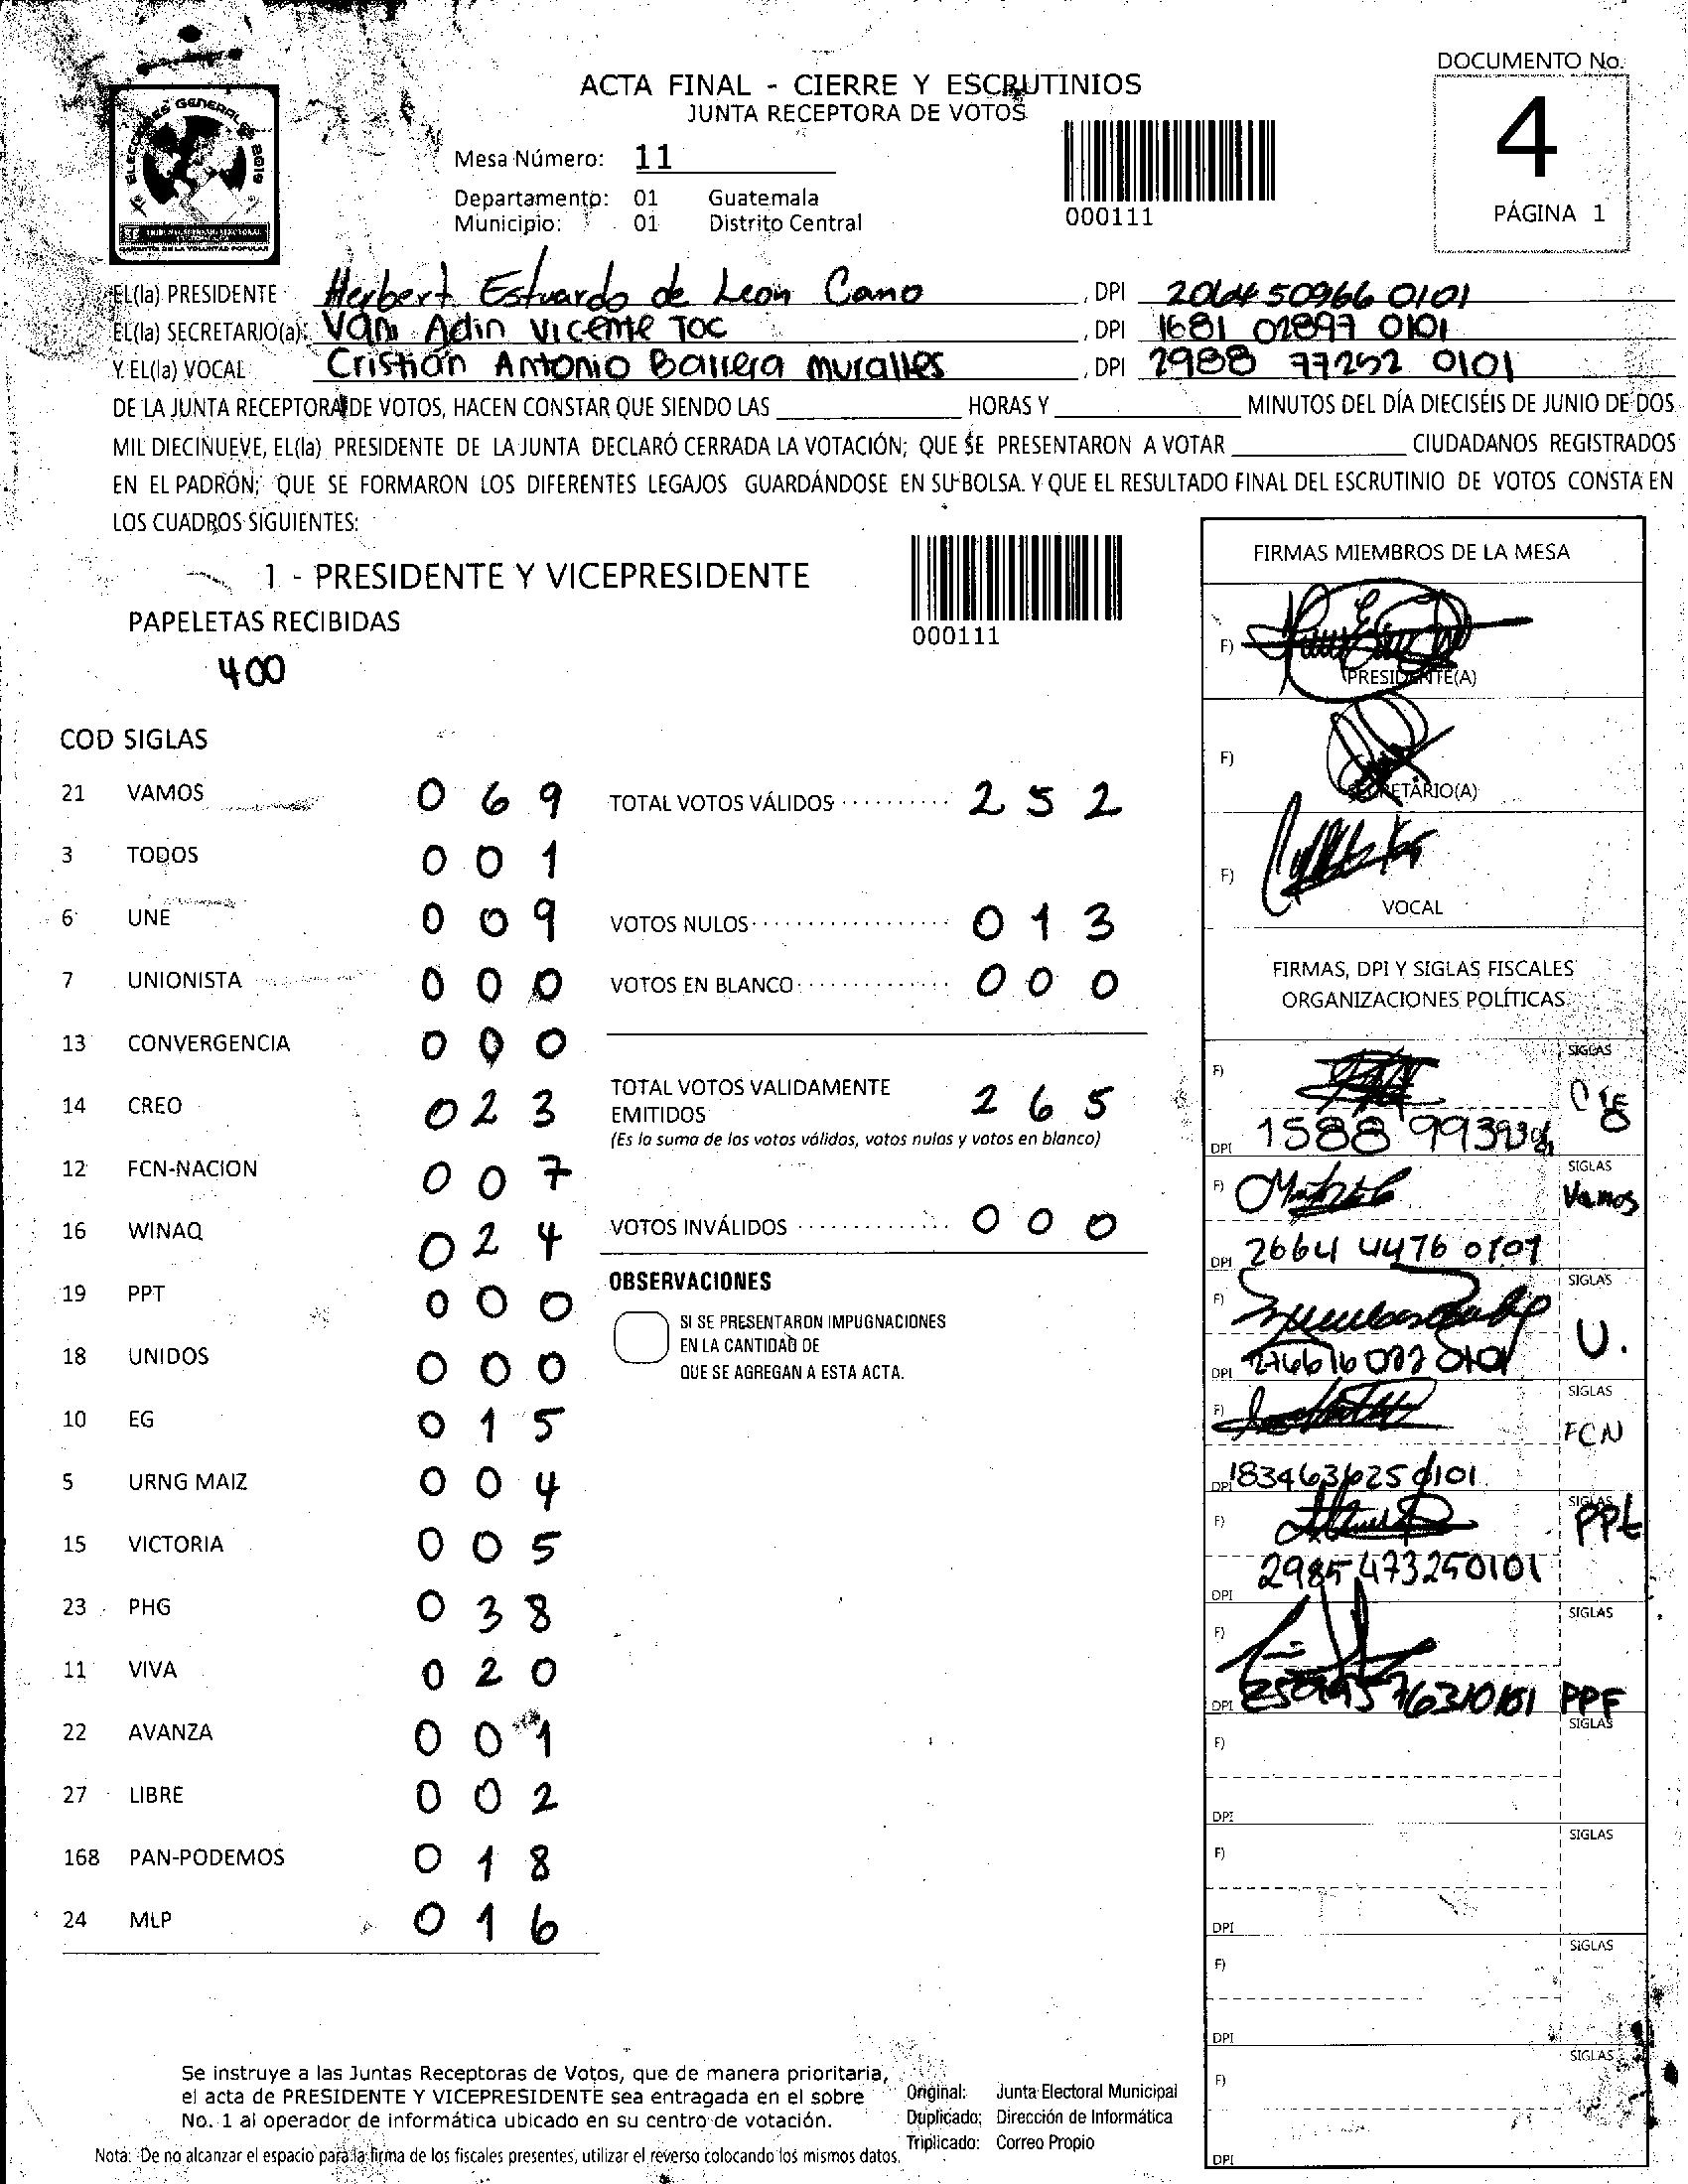 DOCUMENTO No.
4
PÁGINA 1
ACTA FINAL - CIERRE Y ESCRUTINIOS
JUNTA RECEPTORA DE VOTOS
ELECCIONES GENERALES 2019
Mesa Número: 11
Departamento: 01 Guatemala
Municipio: 01 Distrito Central
000111
EL(la) PRESIDENTE Herbert Estuardo de Leon Cano , DPI 2064 50966 0101
EL(la) SECRETARIO(a): Van Adin Vicente Toc , DPI 1681 02897 0101
Y EL(la) VOCAL Cristian Antonio Barrera Muralles , DPI 2988 77252 0101
DE LA JUNTA RECEPTORA DE VOTOS, HACEN CONSTAR QUE SIENDO LAS HORAS Y MINUTOS DEL DÍA DIECISÉIS DE JUNIO DE DOS
MIL DIECINUEVE, EL(la) PRESIDENTE DE LA JUNTA DECLARÓ CERRADA LA VOTACIÓN; QUE SE PRESENTARON A VOTAR CIUDADANOS REGISTRADOS
EN EL PADRÓN; QUE SE FORMARON LOS DIFERENTES LEGAJOS GUARDÁNDOSE EN SU BOLSA. Y QUE EL RESULTADO FINAL DEL ESCRUTINIO DE VOTOS CONSTA EN
LOS CUADROS SIGUIENTES:
1 - PRESIDENTE Y VICEPRESIDENTE
000111
PAPELETAS RECIBIDAS
400
COD SIGLAS
21 VAMOS 0 6 9
3 TODOS 0 0 1
6 UNE 0 0 9
7 UNIONISTA 0 0 0
13 CONVERGENCIA 0 0 0
14 CREO 0 2 3
12 FCN-NACION 0 0 7
16 WINAQ 0 2 4
19 PPT 0 0 0
18 UNIDOS 0 0 0
10 EG 0 1 5
5 URNG MAIZ 0 0 4
15 VICTORIA 0 0 5
23 PHG 0 3 8
11 VIVA 0 2 0
22 AVANZA 0 0 1
27 LIBRE 0 0 2
168 PAN-PODEMOS 0 1 8
24 MLP 0 1 6
TOTAL VOTOS VÁLIDOS 2 5 2
VOTOS NULOS 0 1 3
VOTOS EN BLANCO 0 0 0
TOTAL VOTOS VALIDAMENTE
EMITIDOS 2 6 5
(Es la suma de los votos válidos, votos nulos y votos en blanco)
VOTOS INVÁLIDOS 0 0 0
OBSERVACIONES
SI SE PRESENTARON IMPUGNACIONES
EN LA CANTIDAD DE
QUE SE AGREGAN A ESTA ACTA.
FIRMAS MIEMBROS DE LA MESA
F)
PRESIDENTE(A)
F)
SECRETARIO(A)
F)
VOCAL
FIRMAS, DPI Y SIGLAS FISCALES
ORGANIZACIONES POLÍTICAS
F) SIGLAS
DPI 1588
F) SIGLAS
Vamos
DPI 2664 4476 0101
F) SIGLAS
U.
DPI
F) SIGLAS
FCN
DPI 1834636250101
F) SIGLAS
PPt
2985473250101
DPI
F) SIGLAS
DPI PPF
F) SIGLAS
DPI
F) SIGLAS
DPI
F) SIGLAS
DPI
F) SIGLAS
DPI
Se instruye a las Juntas Receptoras de Votos, que de manera prioritaria,
el acta de PRESIDENTE Y VICEPRESIDENTE sea entragada en el sobre
No. 1 al operador de informática ubicado en su centro de votación.
Original: Junta Electoral Municipal
Duplicado: Dirección de Informática
Triplicado: Correo Propio
Nota: De no alcanzar el espacio para la firma de los fiscales presentes, utilizar el reverso colocando los mismos datos.